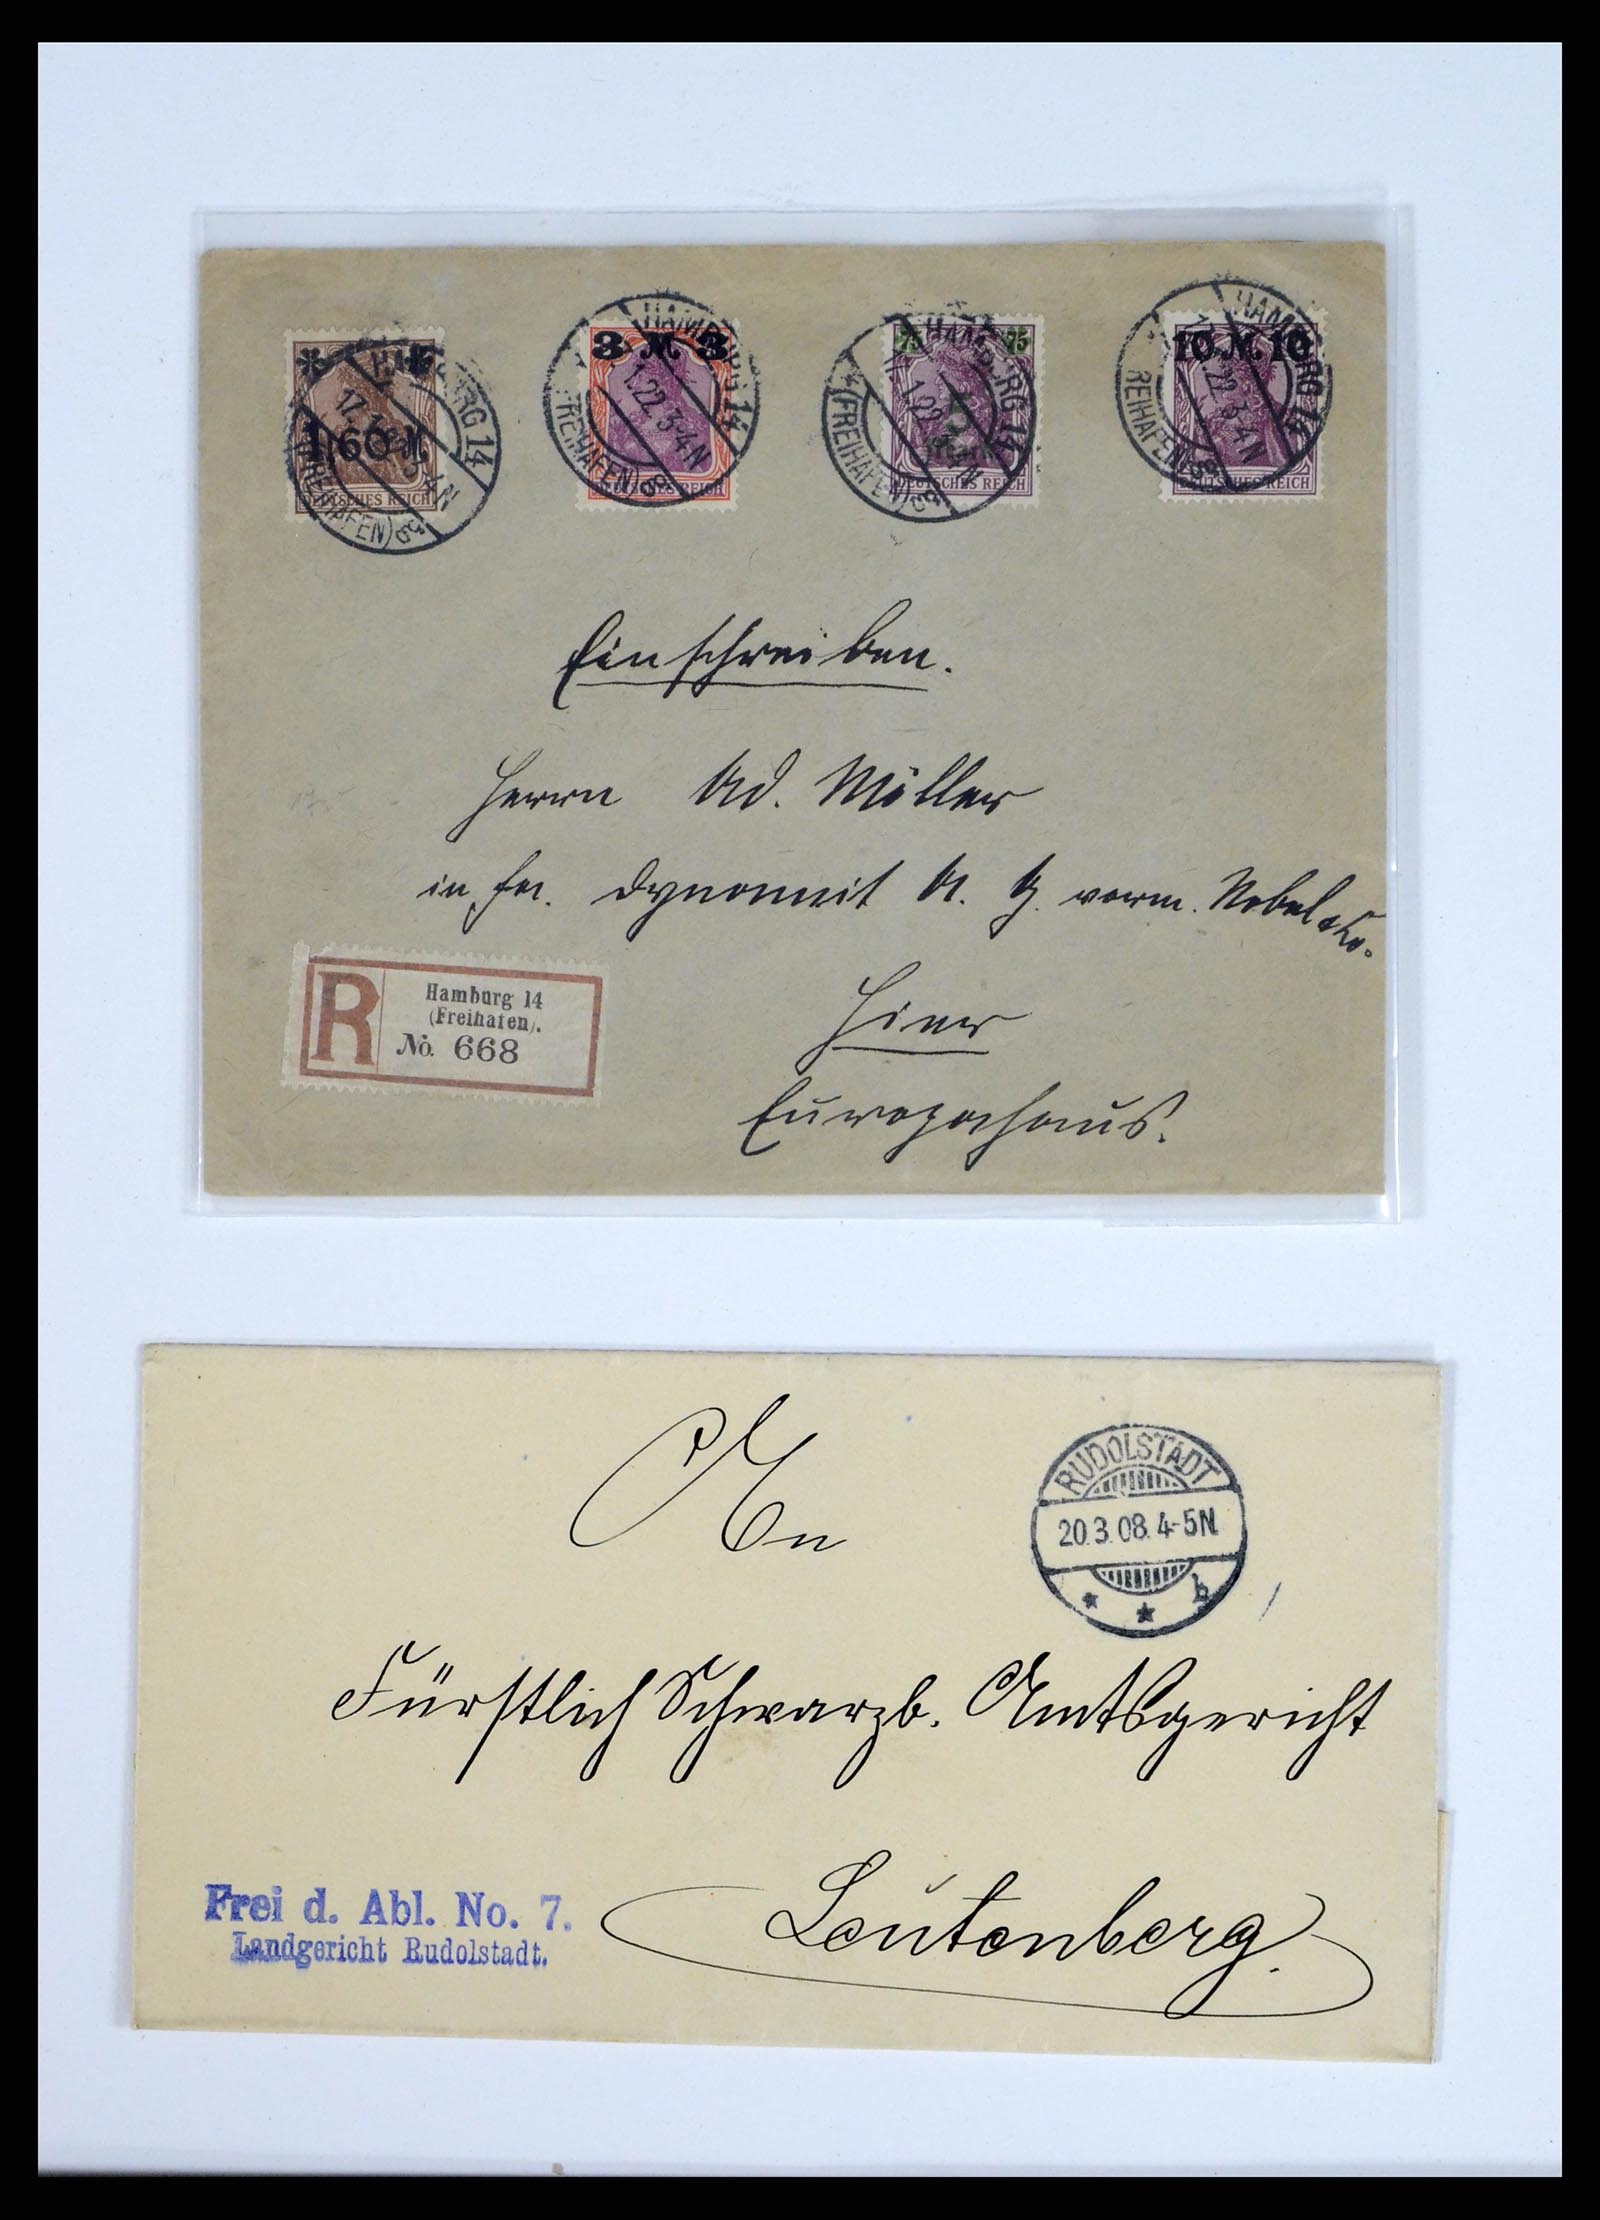 1,60 M
DEUTSCHES REICH
HAMBURG 14
17.1.22.3-4N
(FREIHAFEN)
3 M 3
DEUTSCHES REICH
HAMBURG 14
1.22.3-4N
(FREIHAFEN)
75 75
5
Mark
DEUTSCHES REICH
HAMBURG 14
1.22.3-4N
(FREIHAFEN)
10 M 10
DEUTSCHES REICH
HAMBURG 14
1.22.3-4N
FREIHAFEN
Einschreiben.
Herrn Ad. Möller
in Fa. Dynamit A. G. vorm. Nobel & Co.
Hier
Europahaus.
R
Hamburg 14
(Freihafen).
No. 668
An
RUDOLSTADT
20.3.08.4-5N
* * b
Fürstlich Schwarzb. Amtsgericht
Leutenberg.
Frei d. Abl. No. 7.
Landgericht Rudolstadt.